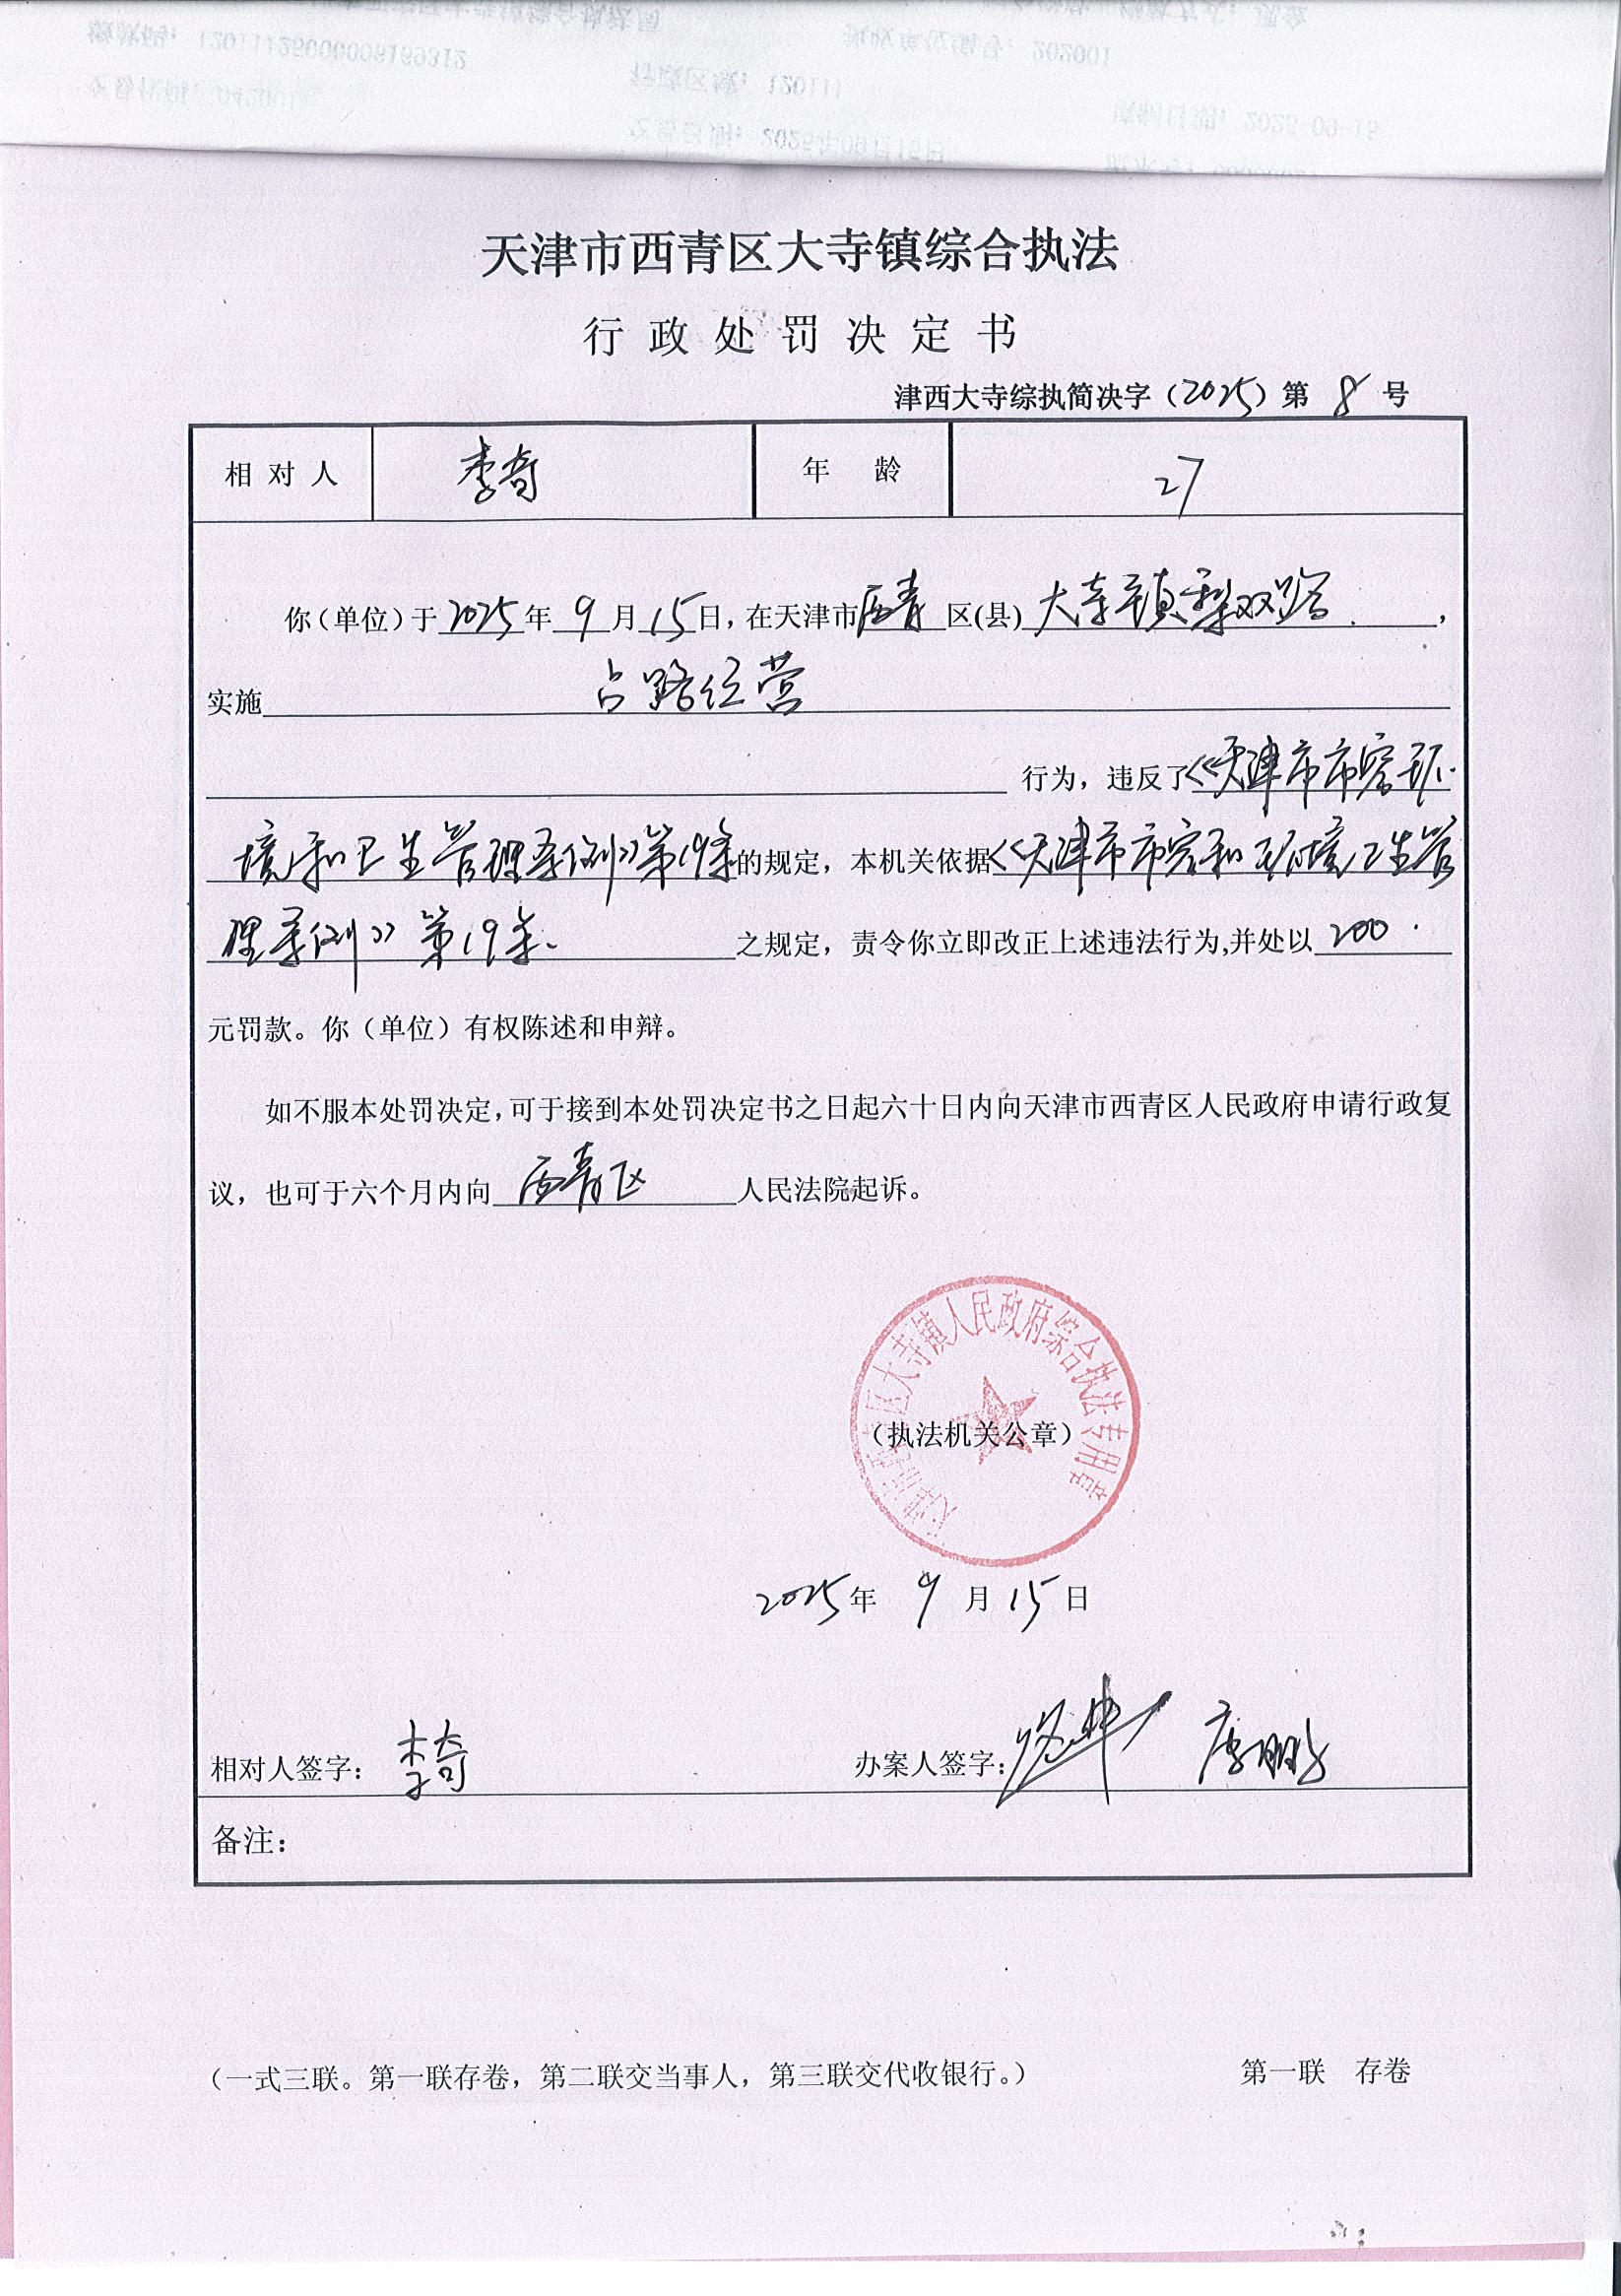 天津市西青区大寺镇综合执法
行政处罚决定书
津西大寺综执简决字（2025）第 8 号
相对人 李奇 年龄 27
你（单位）于2025年9月15日，在天津市西青区(县)大寺镇梨双路，
实施 占路经营
行为，违反了《天津市市容环
境和卫生管理条例》第19条的规定，本机关依据《天津市市容和环境卫生管
理条例》第19条. 之规定，责令你立即改正上述违法行为,并处以200
元罚款。你（单位）有权陈述和申辩。
如不服本处罚决定，可于接到本处罚决定书之日起六十日内向天津市西青区人民政府申请行政复
议，也可于六个月内向 西青区 人民法院起诉。
天津市西青区大寺镇人民政府综合执法专用章
（执法机关公章）
2025年 9 月 15 日
相对人签字： 李奇 办案人签字：
备注：
（一式三联。第一联存卷，第二联交当事人，第三联交代收银行。） 第一联 存卷